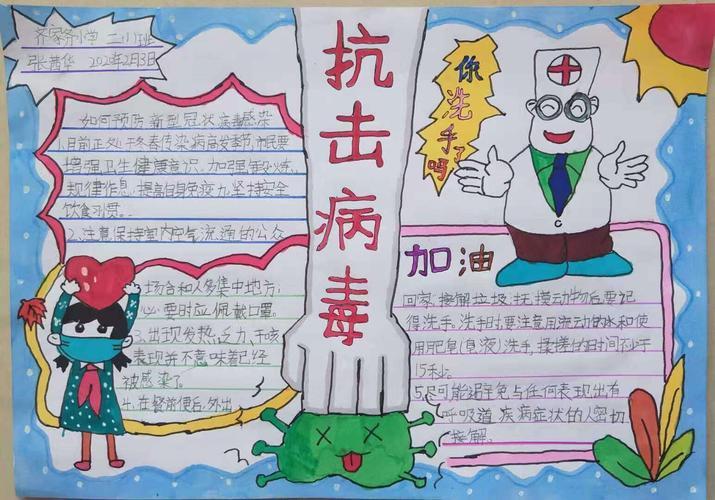 齐家务小学 二(1)班
张茜华 2020年2月3日
抗击病毒
你洗手了吗
如何预防新型冠状病毒感染
1、目前正处于冬春传染病高发季节,市民要
增强卫生健康意识,加强锻炼,
规律作息,提高自身免疫力,坚持安全
饮食习惯。
2、注意保持室内空气流通的公众
场合和人多集中地方,
必要时应佩戴口罩。
3、出现发热、乏力、干咳
表现并不意味着已经
被感染了。
4、在餐前便后、外出
加油
回家、接触垃圾、抚摸动物后要记
得洗手。洗手时,要注意用流动的水和使
用肥皂(皂液)洗手,揉搓的时间不少于
15秒。
5、尽可能避免与任何表现出有
呼吸道疾病症状的人密切
接触。